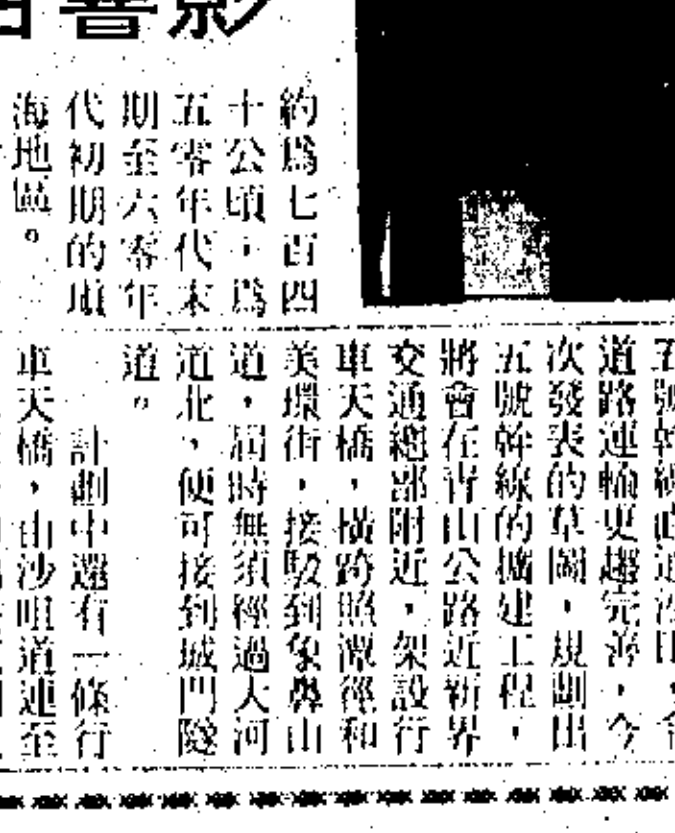 善影
約爲七百四
十公頃，爲
五零年代末
期至六零年
代初期的填
海地區。
道路運輸更趨完善，今
次發表的草圖，規劃出
五號幹線的擴建工程，
將會在青山公路近新界
交通總部附近，架設行
車天橋，橫跨照潭徑和
美環街，接駁到象鼻山
道，屆時無須徑過大河
道北，便可接到城門隧
道。
計劃中還有一條行
車天橋，由沙咀道連至